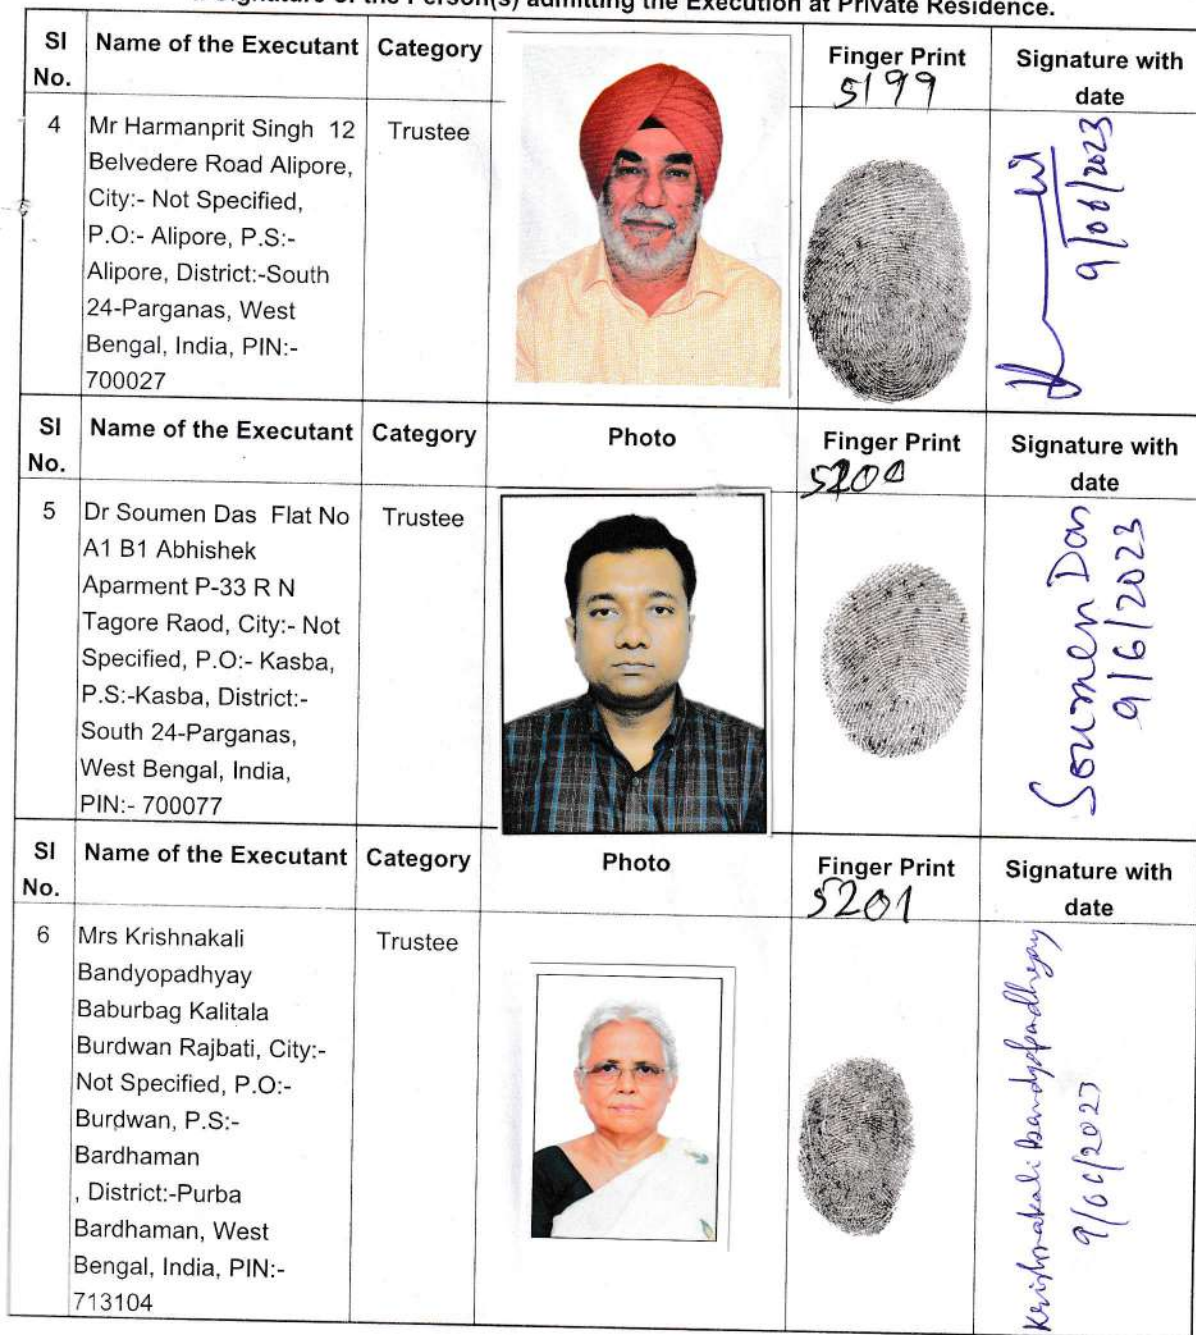 Signature of the Person(s) admitting the Execution at Private Residence.
Sl No. Name of the Executant Category Finger Print Signature with date
5199
4 Mr Harmanprit Singh 12 Trustee
Belvedere Road Alipore,
City:- Not Specified,
P.O:- Alipore, P.S:-
Alipore, District:-South
24-Parganas, West
Bengal, India, PIN:-
700027
9/06/2023
Sl No. Name of the Executant Category Photo Finger Print Signature with date
5200
5 Dr Soumen Das Flat No Trustee
A1 B1 Abhishek
Aparment P-33 R N
Tagore Raod, City:- Not
Specified, P.O:- Kasba,
P.S:-Kasba, District:-
South 24-Parganas,
West Bengal, India,
PIN:- 700077
Soumen Das
9/6/2023
Sl No. Name of the Executant Category Photo Finger Print Signature with date
5201
6 Mrs Krishnakali Trustee
Bandyopadhyay
Baburbag Kalitala
Burdwan Rajbati, City:-
Not Specified, P.O:-
Burdwan, P.S:-
Bardhaman
, District:-Purba
Bardhaman, West
Bengal, India, PIN:-
713104
Krishnakali Bandyopadhyay
9/06/2023